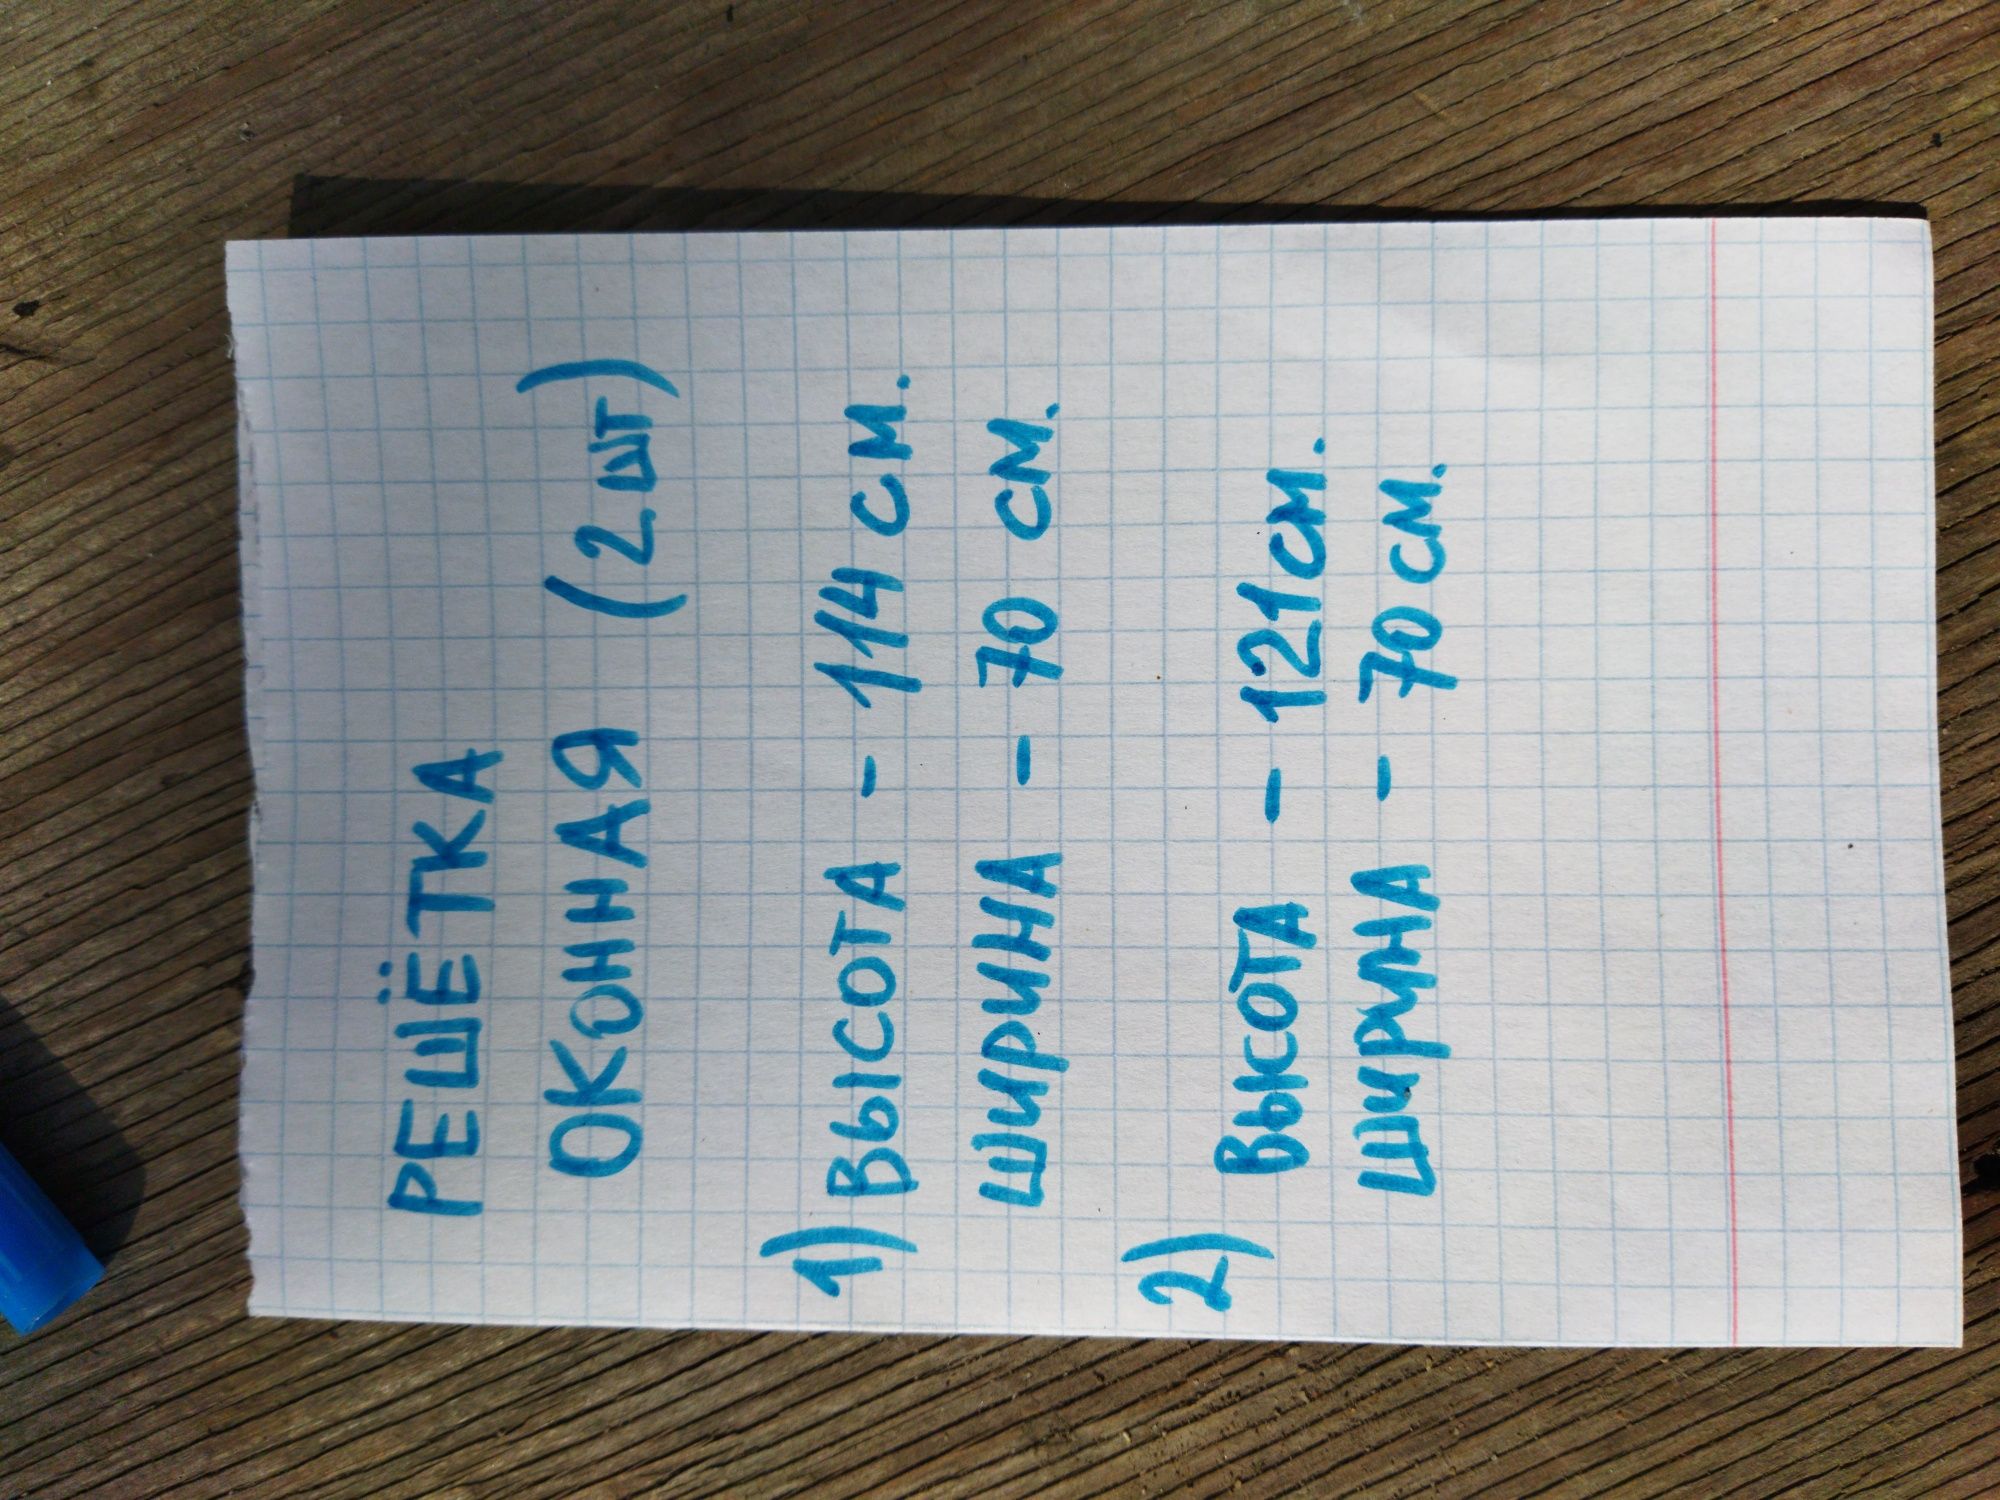 РЕШЁТКА
ОКОННАЯ (2 шт)
1) ВЫСОТА - 114 см.
ШИРИНА - 70 см.
2) ВЫСОТА - 121 см.
ШИРИНА - 70 см.